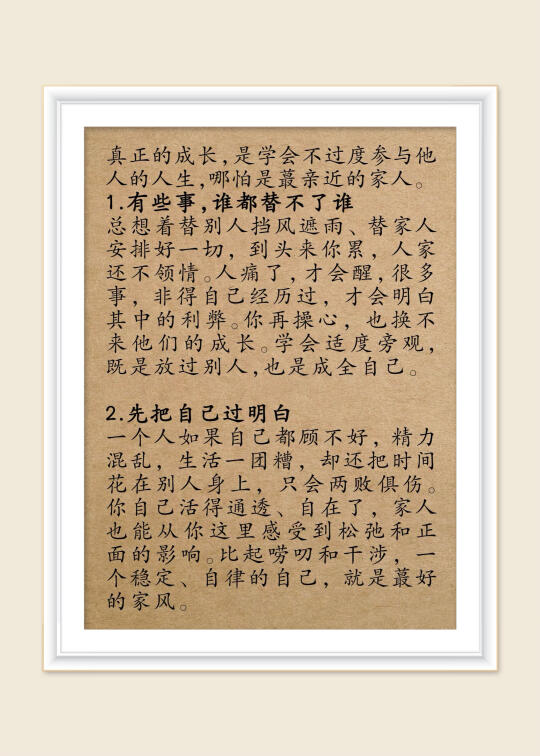 真正的成长，是学会不过度参与他
人的人生，哪怕是蕞亲近的家人。
1.有些事，谁都替不了谁
总想着替别人挡风遮雨、替家人
安排好一切，到头来你累，人家
还不领情。人痛了，才会醒，很多
事，非得自己经历过，才会明白
其中的利弊。你再操心，也换不
来他们的成长。学会适度旁观，
既是放过别人，也是成全自己。
2.先把自己过明白
一个人如果自己都顾不好，精力
混乱，生活一团糟，却还把时间
花在别人身上，只会两败俱伤。
你自己活得通透、自在了，家人
也能从你这里感受到松弛和正
面的影响。比起唠叨和干涉，一
个稳定、自律的自己，就是蕞好
的家风。